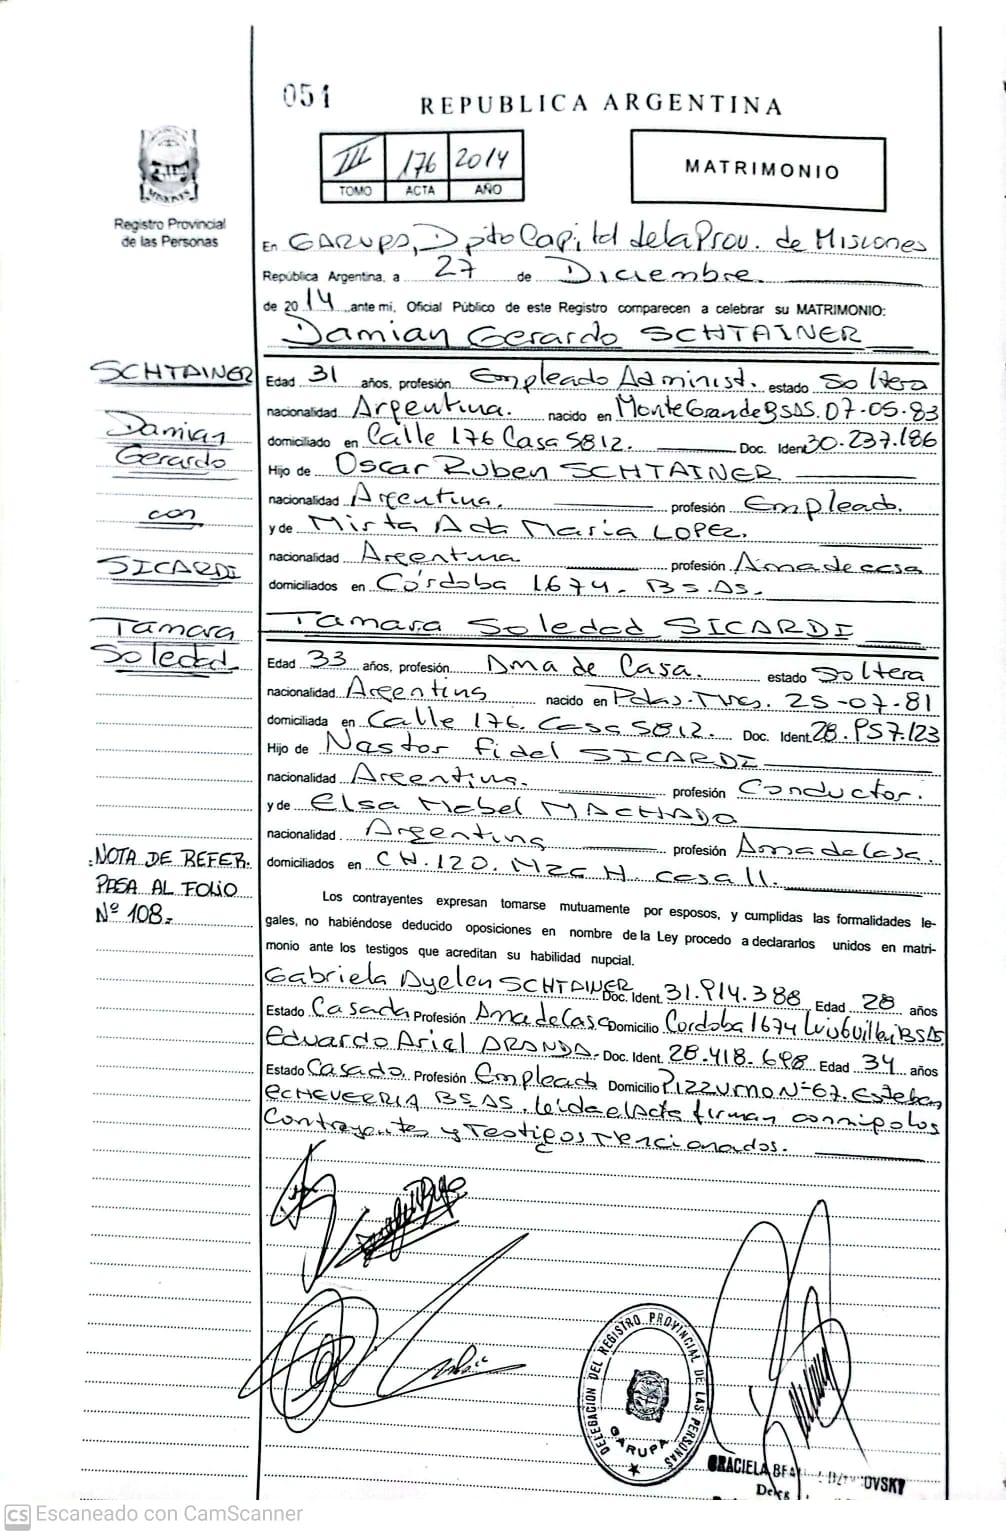 051
REPUBLICA ARGENTINA
III 176 2014
TOMO ACTA AÑO
MATRIMONIO
Registro Provincial
de las Personas
En GARUPA, Dpto Capital de la Prov. de Misiones
República Argentina, a 27 de Diciembre.
de 2014 ante mi, Oficial Público de este Registro comparecen a celebrar su MATRIMONIO:
Damian Gerardo SCHTAINER
SCHTAINER
Damian
Gerardo
con
SICARDI
Tamara
Soledad
Edad 31 años, profesión Empleado Administ. estado Soltera
nacionalidad Argentina. nacido en Monte Grande BsAs. 07-05-83
domiciliado en Calle 176 Casa 5812. Doc. Ident 30.237.186
Hijo de Oscar Ruben SCHTAINER
nacionalidad Argentina. profesión Empleado.
y de Mirta Ada Maria LOPEZ.
nacionalidad Argentina profesión Ama de casa
domiciliados en Córdoba 1674. Bs.As.
Tamara Soledad SICARDI
Edad 33 años, profesión Ama de Casa. estado Soltera
nacionalidad Argentina nacido en Pdas. Mnes. 25-07-81
domiciliada en Calle 176. Casa 5812. Doc. Ident. 28.957.123
Hijo de Nastor Fidel SICARDI
nacionalidad Argentina. profesión Conductor.
y de Elsa Mabel MACHADO
nacionalidad Argentina profesión Ama de Casa.
domiciliados en CH. 120. Mza H. casa 11.
NOTA DE REFER.
PASA AL FOLIO
Nº 108.-
Los contrayentes expresan tomarse mutuamente por esposos, y cumplidas las formalidades le-
gales, no habiéndose deducido oposiciones en nombre de la Ley procedo a declararlos unidos en matri-
monio ante los testigos que acreditan su habilidad nupcial.
Gabriela Ayelen SCHTAINER Doc. Ident. 31.914.388 Edad 28 años
Estado Casada Profesión Ama de Casa Domicilio Cordoba 1674 BSAS
Eduardo Ariel ARANDA. Doc. Ident. 28.418.698 Edad 34 años
Estado Casado. Profesión Empleado Domicilio Pizzurno Nº 67. Esteban
ECHEVERRIA BSAS. leida el Acta firman conmigo los
Contrayentes y Testigos Mencionados.
DELEGACION DEL REGISTRO PROVINCIAL DE LAS PERSONAS
GARUPA
GRACIELA
Deleg
CS Escaneado con CamScanner